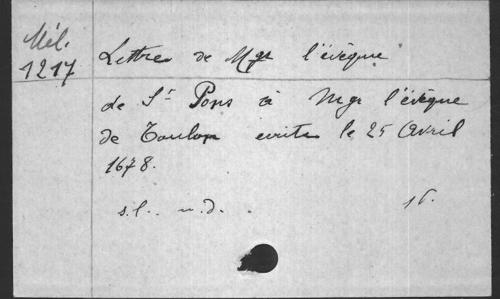 Mél.
1217
Lettre de Mgr l'évêque
de St Pons à Mgr l'évêque
de Toulon écrite le 25 Avril
1678.
s.l. n.d.